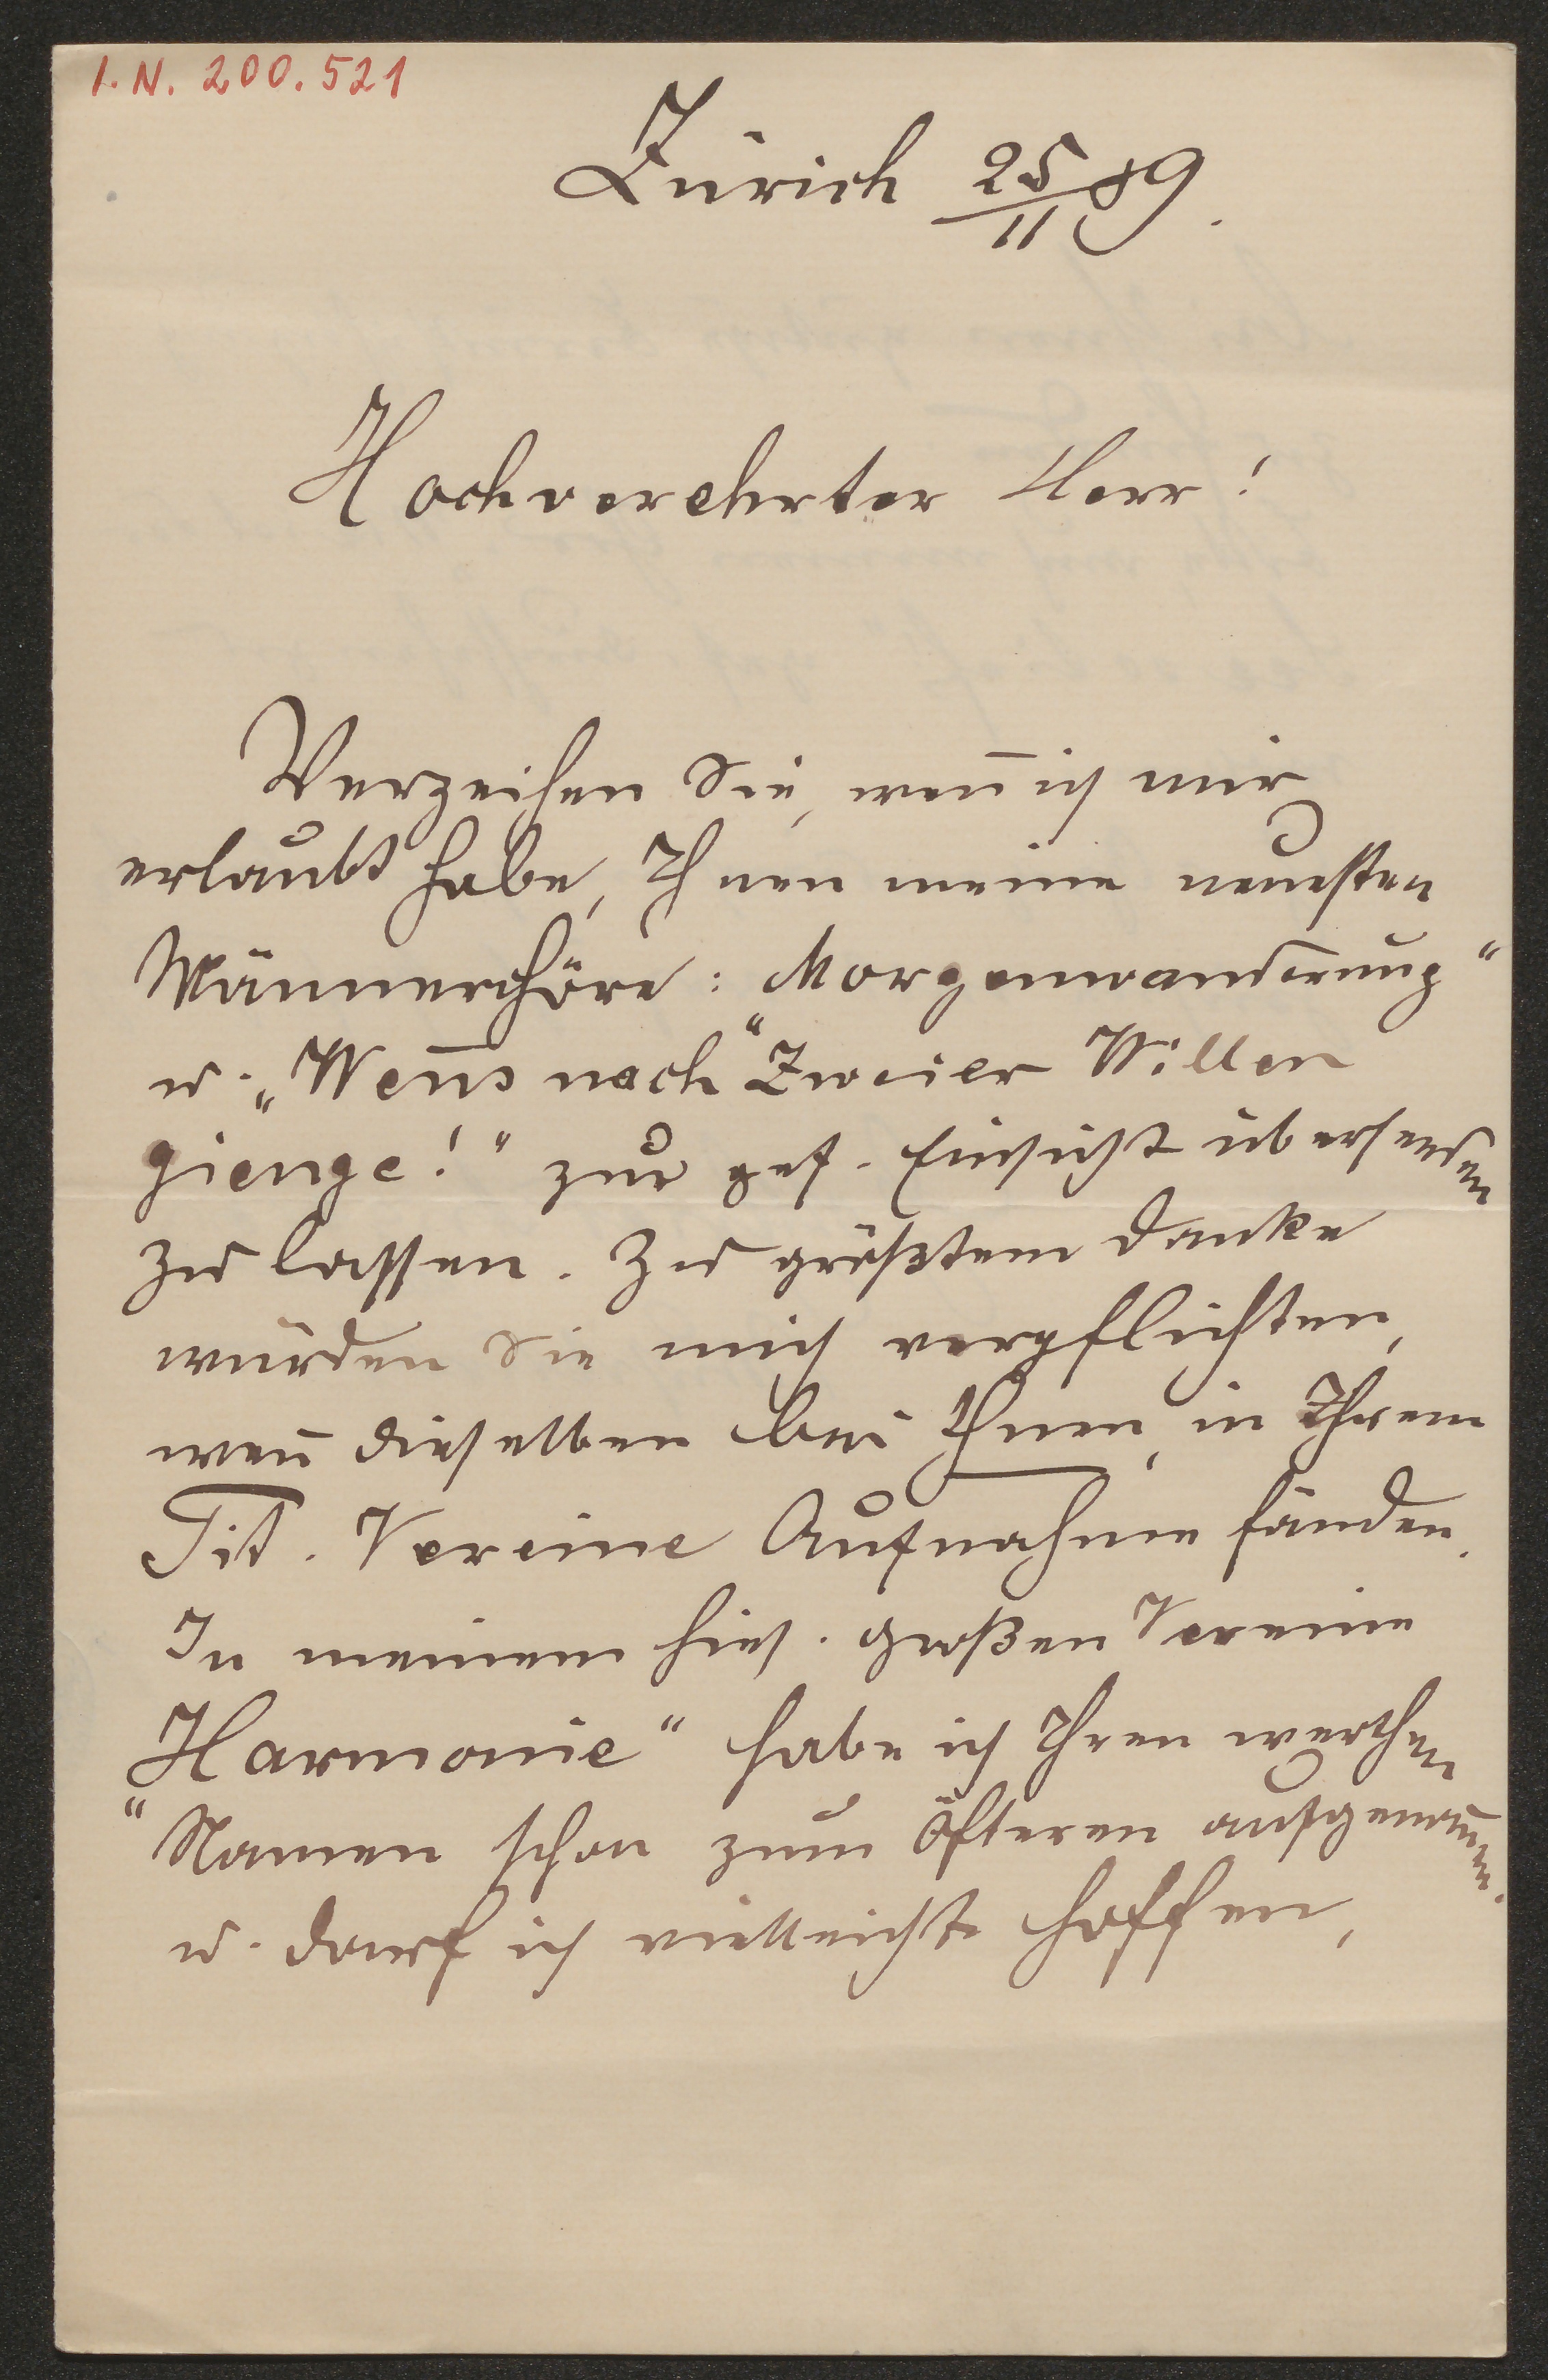 I.N. 200.521
Zürich 25/11 89.
Hochverehrter Herr!
Verzeihen Sie, weñ ich mir
erlaubt habe, Ihnen meine neuesten
Männerchöre: „Morgenwanderung“
u. „Weñs nach Zweier Willen
gienge!“ zur gef. Einsicht übersenden
zu lassen. Zu größtem Danke
würden Sie mich verpflichten,
weñ dieselben bei Ihnen, in Ihrem
Tit. Vereine Aufnahme fänden.
In meinem hies. großen Vereine
„Harmonie“ habe ich Ihren werthen
Namen schon zum öfteren aufgenom̄en.
u. darf ich vielleicht hoffen,